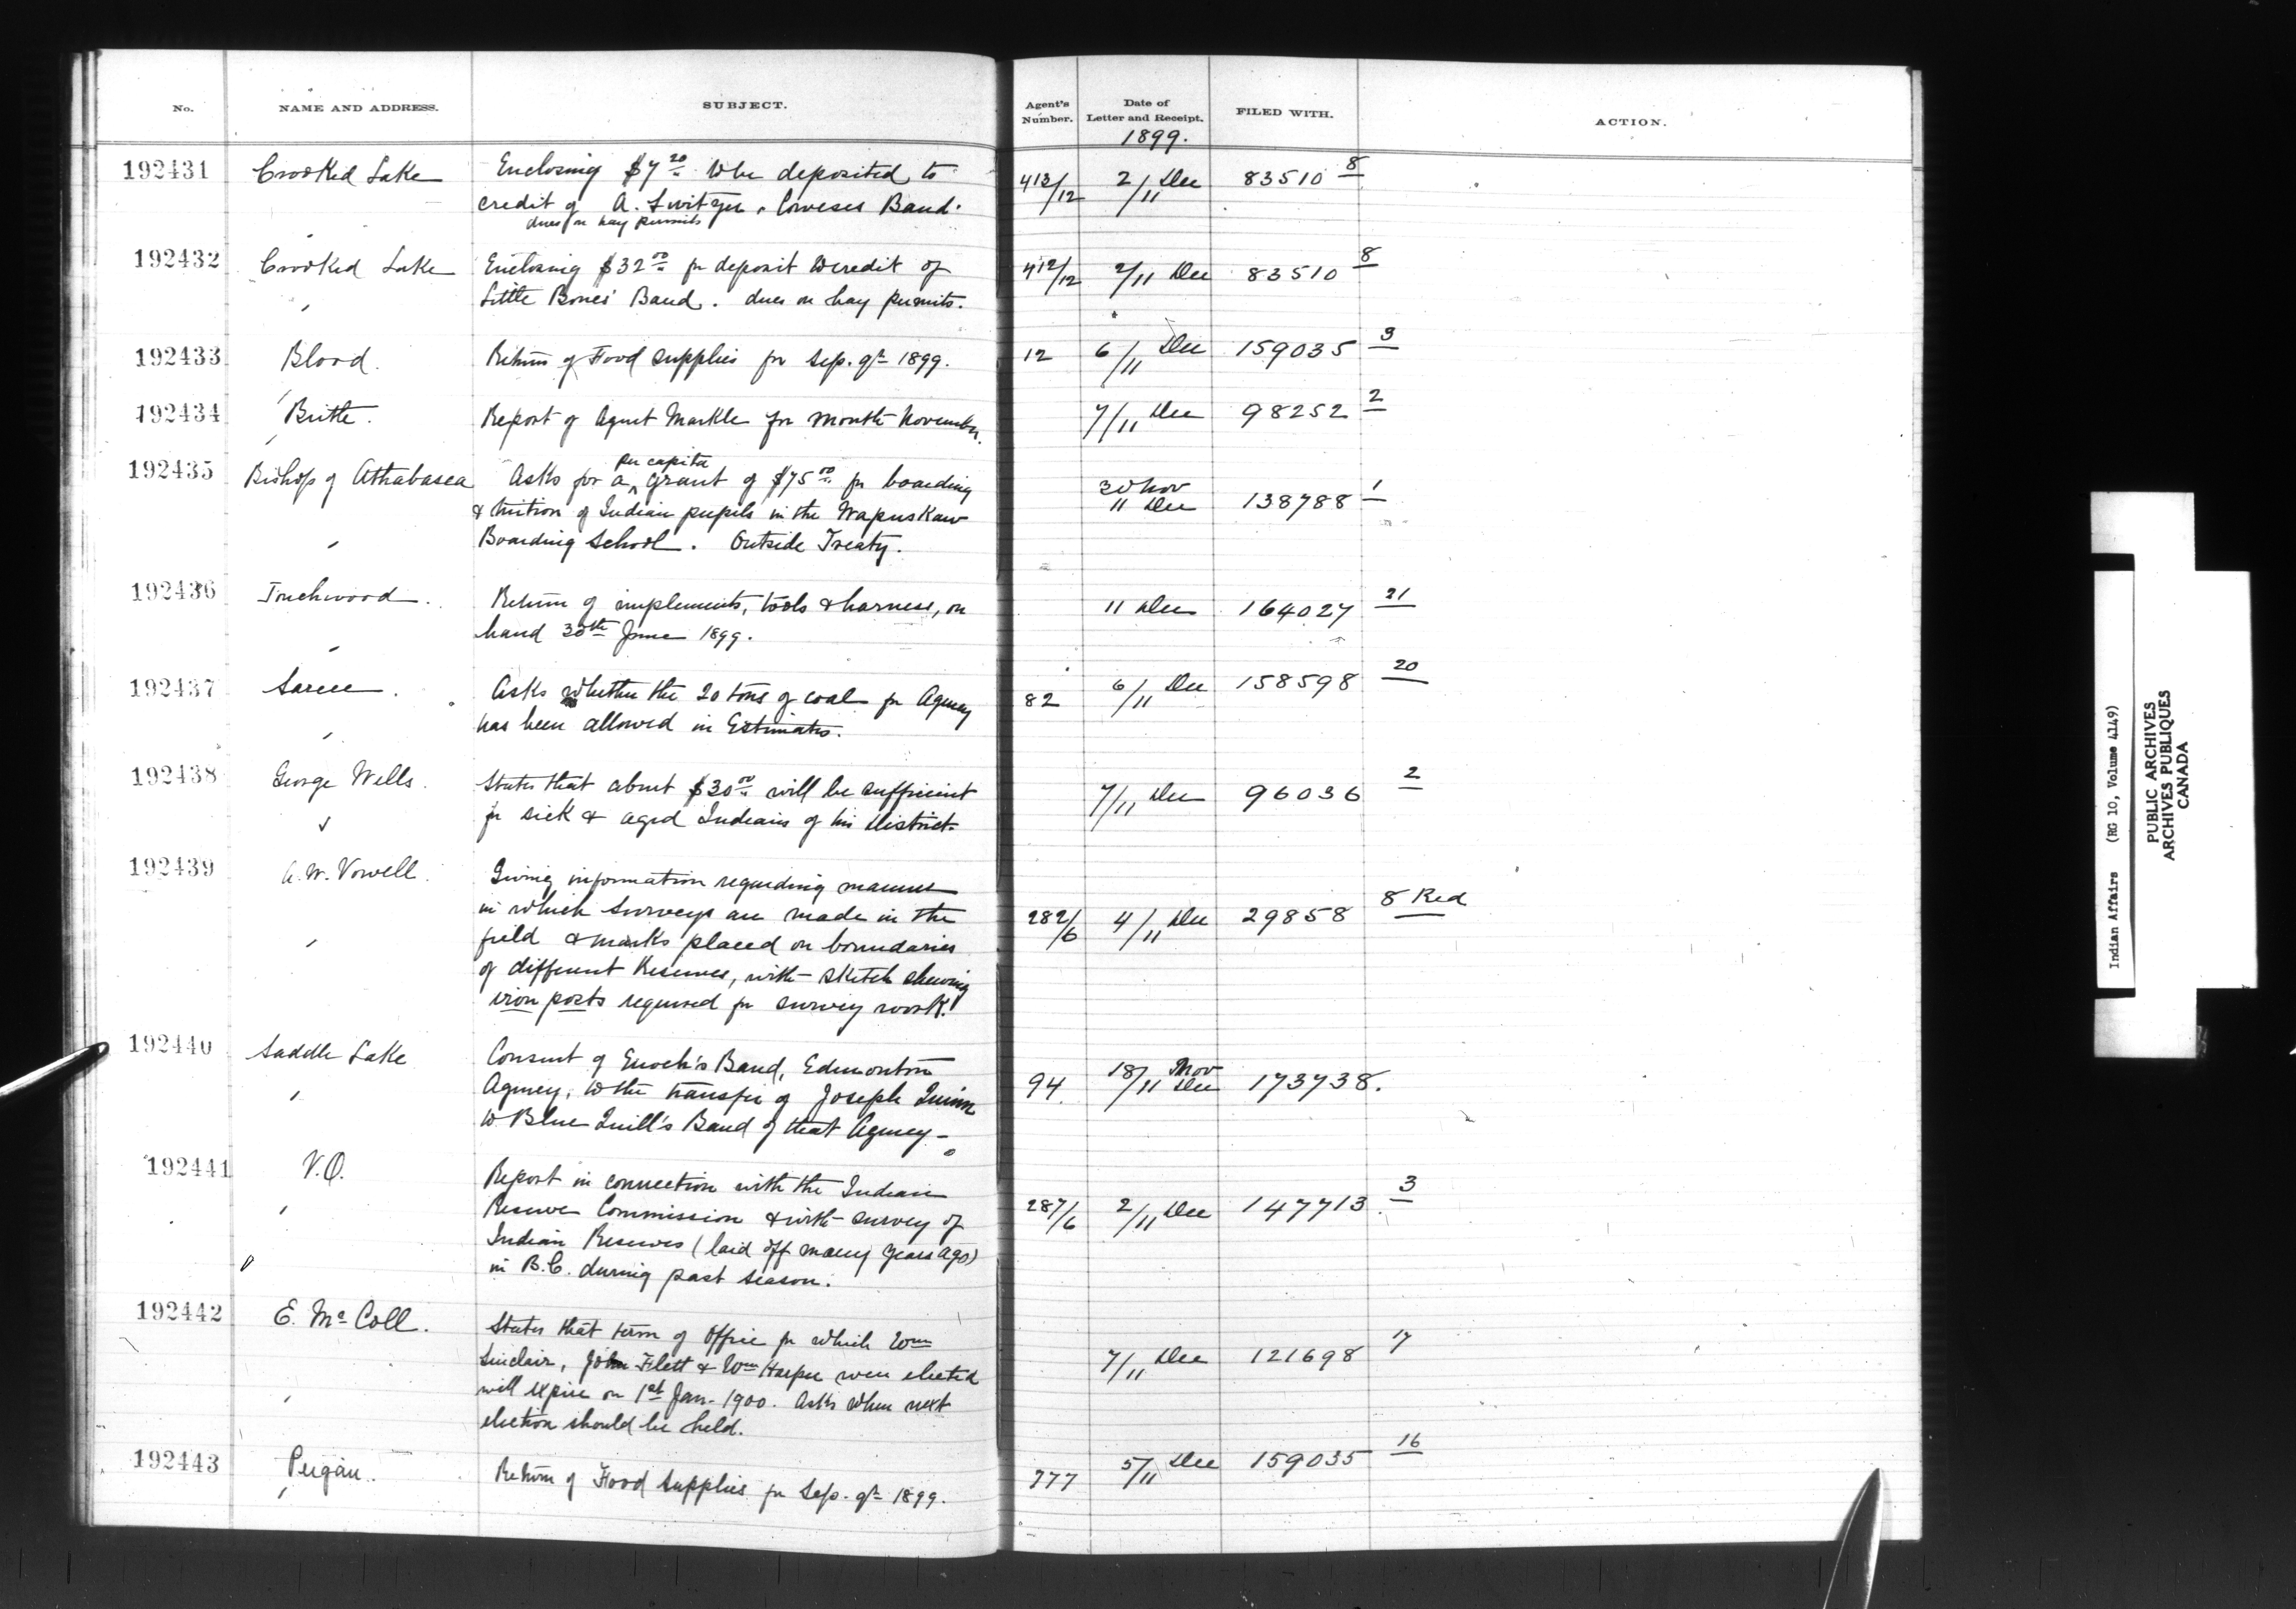 No. NAME AND ADDRESS. SUBJECT. Agent's Number. Date of Letter and Receipt. FILED WITH. ACTION.
1899.
192431 Crooked Lake Enclosing $7 20 to be deposited to 413/12 2/11 Dec 83510 8
credit of A. Switzer, Cowesess Band.
dues on hay permits
192432 Crooked Lake Enclosing $32 00 for deposit to credit of 412/12 2/11 Dec 83510 8
Little Bones' Band. dues on hay permits.
192433 Blood. Return of Food supplies for Sep. qr 1899. 12 6/11 Dec 159035 3
192434 Birtle. Report of Agent Markle for month November. 7/11 Dec 98252 2
192435 Bishop of Athabasca Asks for a per capita grant of $75 00 for boarding 30 Nov 11 Dec 138788 1
& tuition of Indian pupils in the Wapuskaw
Boarding School. Outside Treaty.
192436 Touchwood. Return of implements, tools & harness, on 11 Dec 164027 21
hand 30th June 1899.
192437 Sarcee. Asks whether the 20 tons of coal for Agency 82 6/11 Dec 158598 20
has been allowed in Estimates.
192438 George Wells. States that about $30 00 will be sufficient 7/11 Dec 96036 2
for sick & aged Indians of his District.
192439 A. W. Vowell. Giving information regarding manner
in which surveys are made in the 282/6 4/11 Dec 29858 8 Red
field & marks placed on boundaries
of different Reserves, with sketch shewing
iron posts required for survey work.
192440 Saddle Lake Consent of Enoch's Band, Edmonton
Agency, to the transfer of Joseph Quinn 94. 18 Nov/11 Dec 173738.
to Blue Quill's Band of that Agency-
192441 V.O. Report in connection with the Indian
Reserve Commission & with survey of 287/6 2/11 Dec 147713. 3
Indian Reserves (laid off many years ago)
in B.C. during past season.
192442 E. McColl. States that term of Office for which Wm
Sinclair, John Flett & Wm Harper were elected 7/11 Dec 121698 17
will expire on 1st Jan. 1900. Asks when next
election should be held.
192443 Peigan. Return of Food supplies for Sep. qr 1899. 777 5/11 Dec 159035 16
Indian Affairs (RG 10, Volume 4149)
PUBLIC ARCHIVES
ARCHIVES PUBLIQUES
CANADA